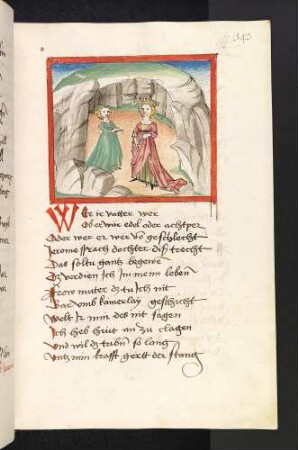 Wer ir vatter wer
Ob er war edel oder achtper
Oder wer er wer vō geschlecht
Jerome sprach dochter dis trecht
Das soltu gantz begern
Ez verdien ich jn mein leben
Frow muter dz tu ich nit
umb kamerlay geschicht
Welt jr mir des nit sagen
Ich heb hüt an zu clagen
Und wil dz triben so lang
Untz mir krafft der stang